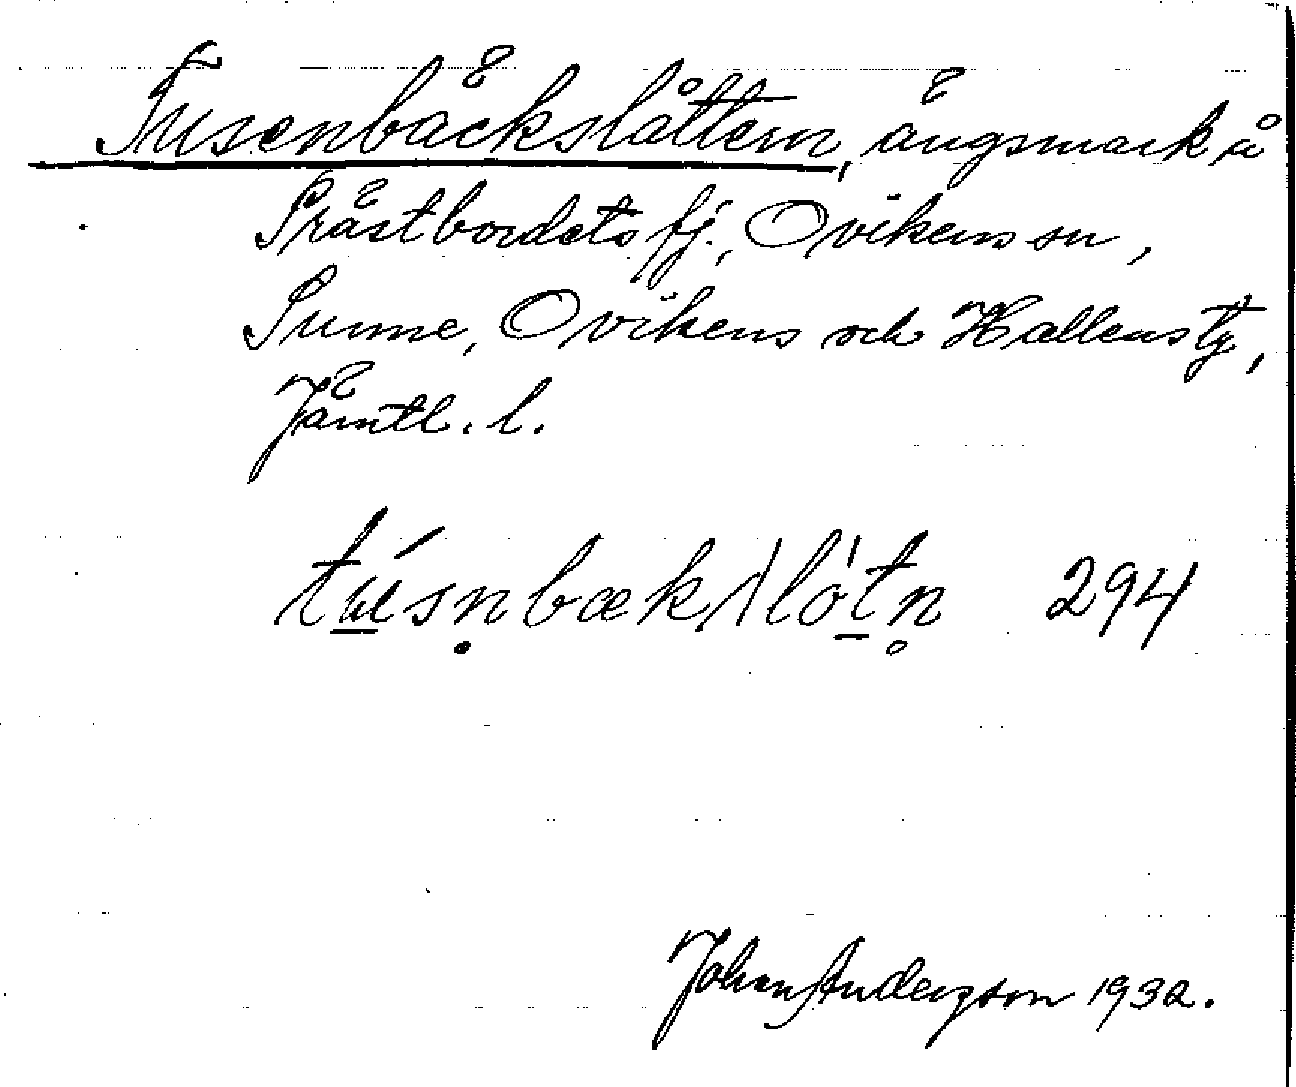 Tusenbäckslåttern, ängsmark å
Prästbordets fj., Ovikens sn,
Sunne, Ovikens och Hallens tg,
Jämtl. l.
túsn̥bæks|lòtn̥ 294
Johan Anderzson 1932.